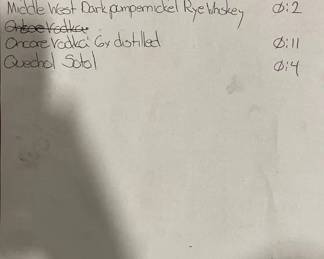 Middle West Dark pumpernickel Rye Whiskey Ø:2
Oncore Vodka
Oncore Vodka 6x distilled Ø:11
Quechol Sotol Ø:4